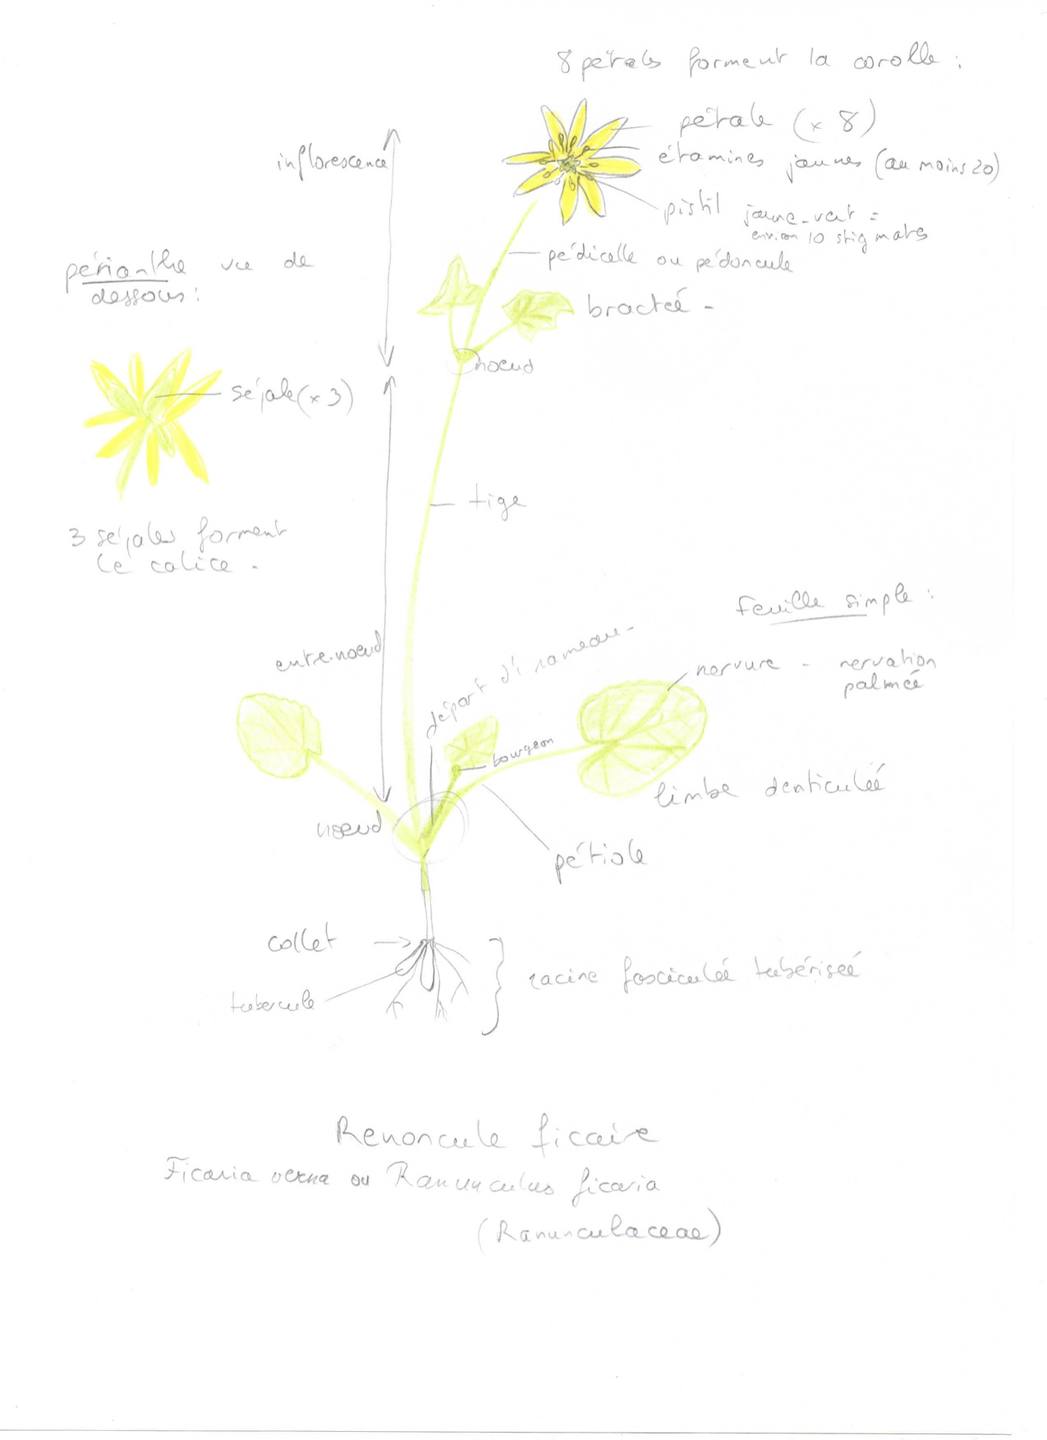 8 pétales forment la corolle :
pétale (x 8)
étamines jaunes (au moins 20)
inflorescence
pistil jaune-vert =
environ 10 stigmates
pédicelle ou pédoncule
périanthe vue de
dessous :
bractée -
noeud
sépale (x 3)
tige
3 sépales forment
le calice -
feuille simple :
entre-noeud
départ d'1 rameau -
nervure - nervation
palmée
bourgeon
limbe denticulé
noeud
pétiole
collet
racine fasciculée tubérisée
tubercule
Renoncule ficaire
Ficaria verna ou Ranunculus ficaria
(Ranunculaceae)